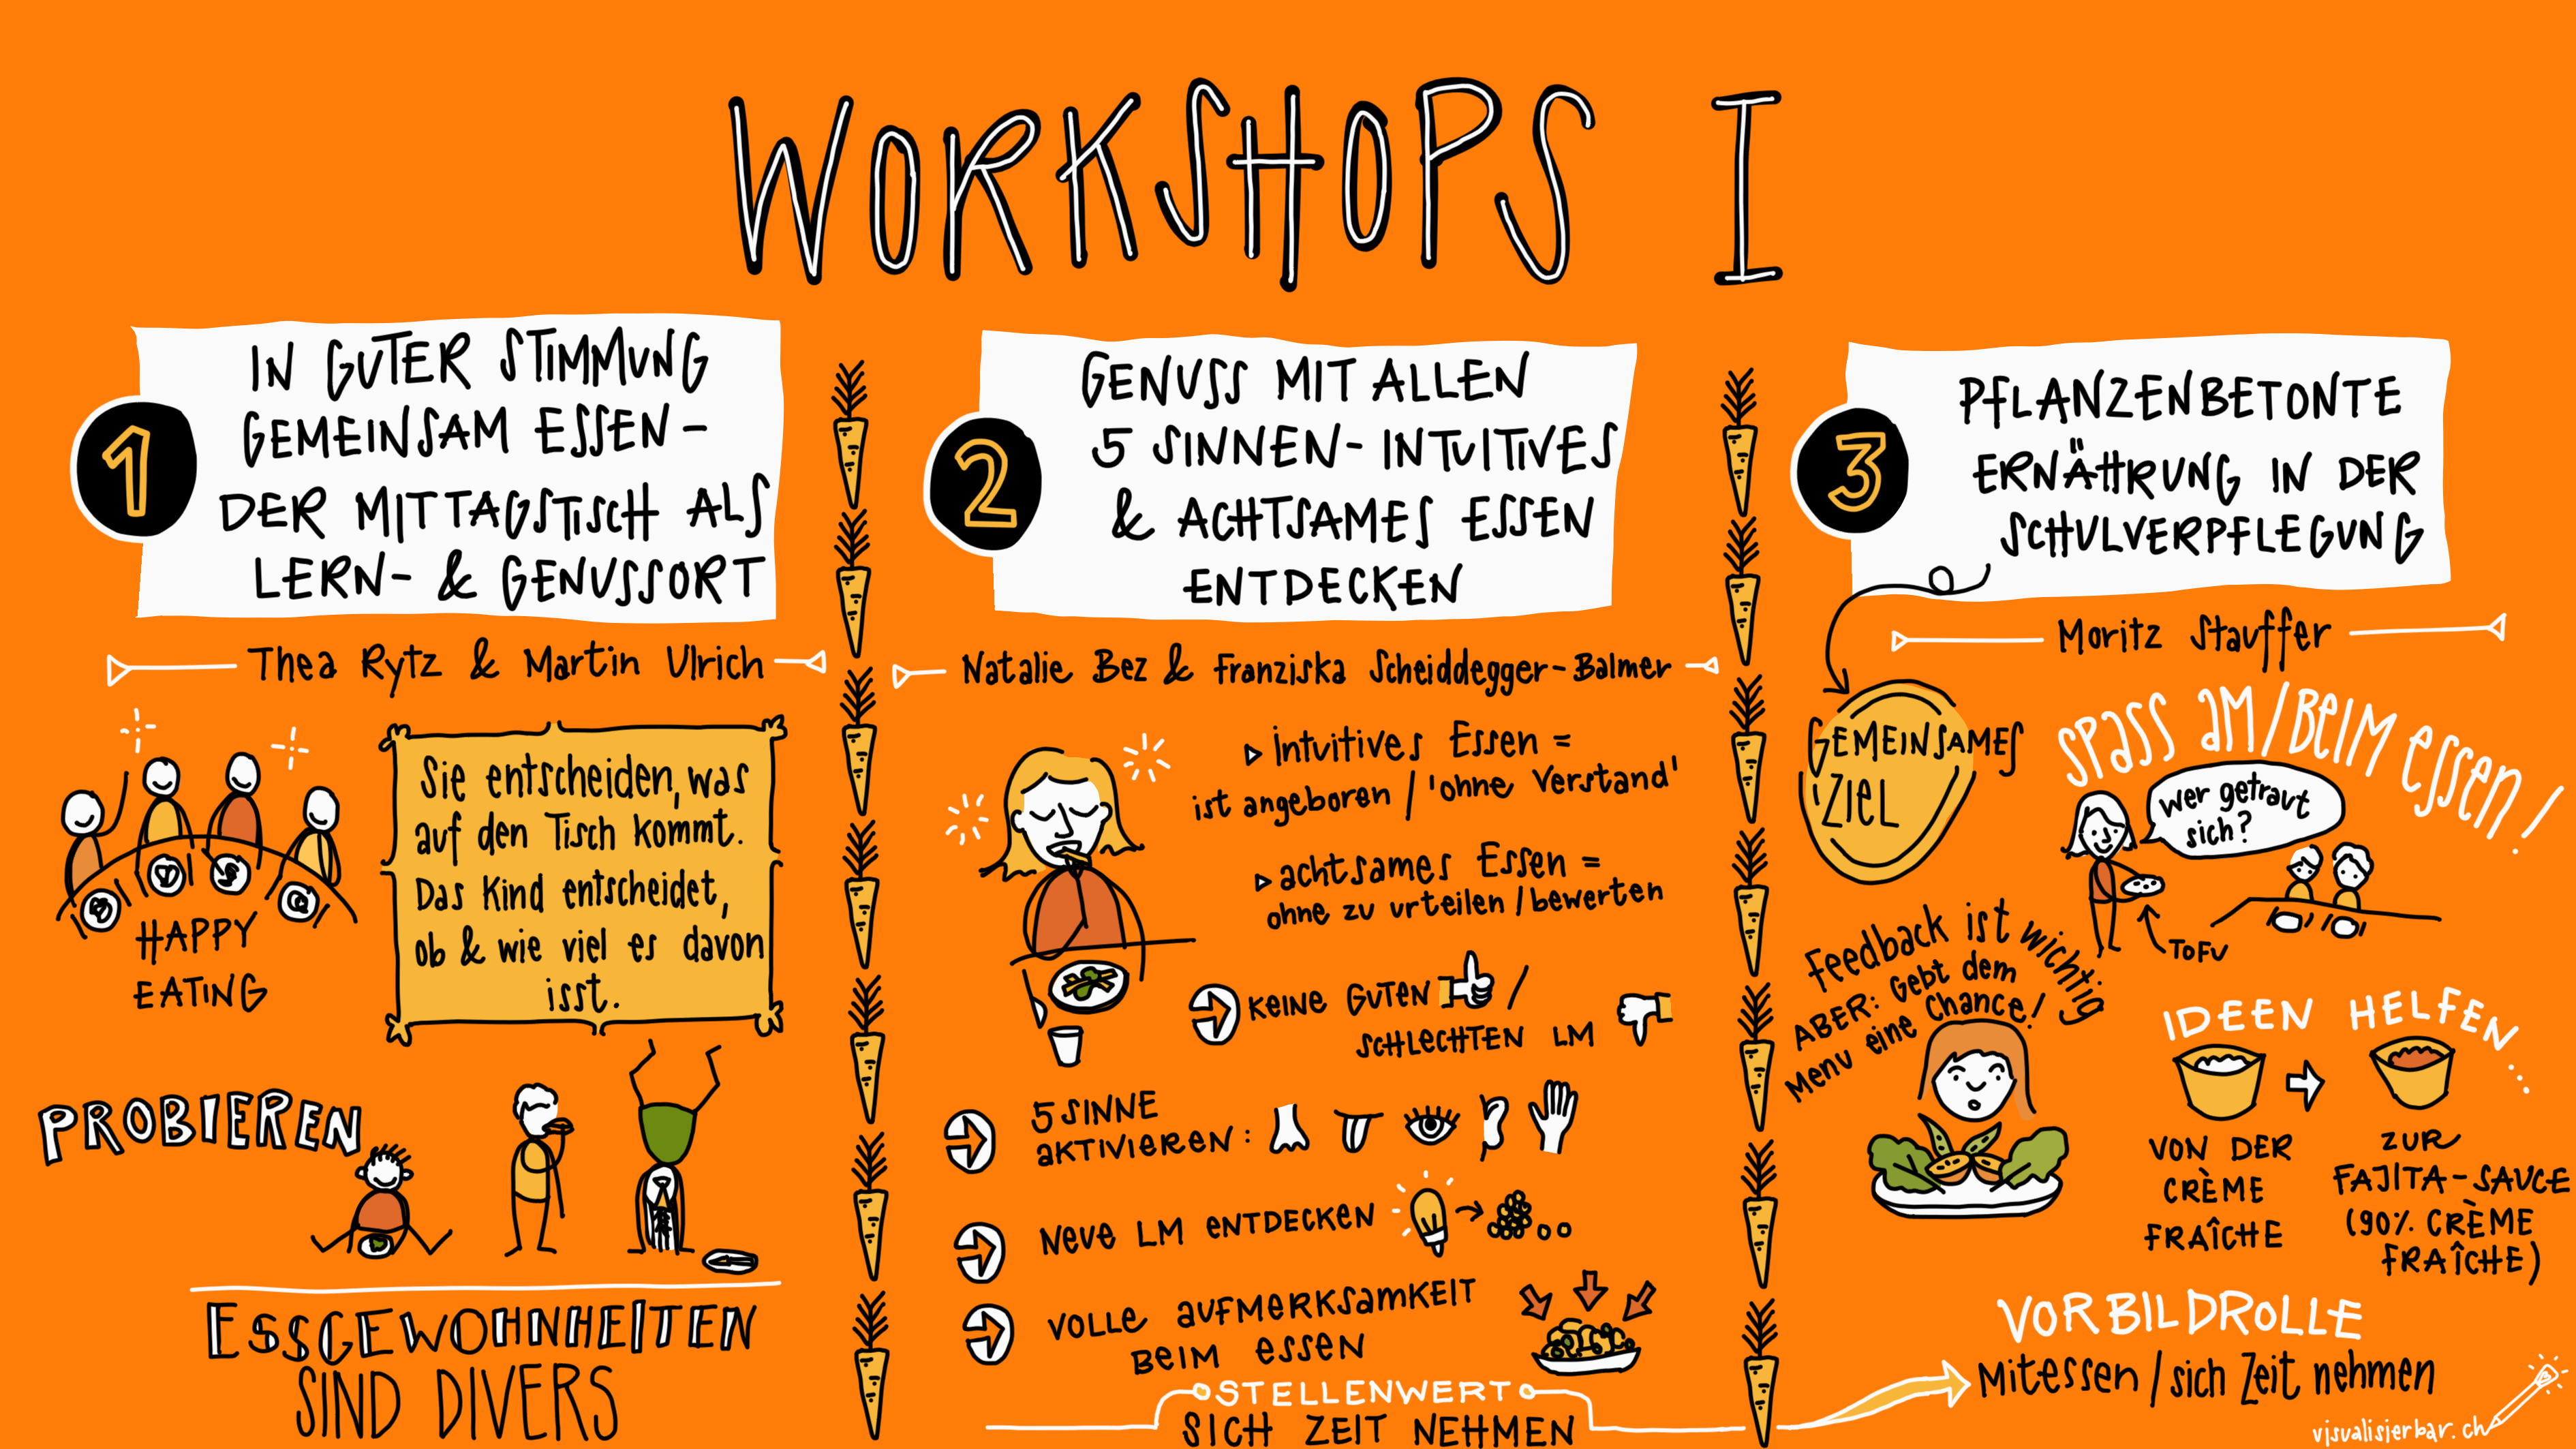 WORKSHOPS I
1
IN GUTER STIMMUNG
GEMEINSAM ESSEN -
DER MITTAGSTISCH ALS
LERN- & GENUSSORT
Thea Rytz & Martin Ulrich
HAPPY
EATING
Sie entscheiden, was
auf den Tisch kommt.
Das Kind entscheidet,
ob & wie viel es davon
isst.
PROBIEREN
ESSGEWOHNHEITEN
SIND DIVERS
2
GENUSS MIT ALLEN
5 SINNEN - INTUITIVES
& ACHTSAMES ESSEN
ENTDECKEN
Natalie Bez & Franziska Scheiddegger-Balmer
intuitives Essen =
ist angeboren / 'ohne Verstand'
achtsames Essen =
ohne zu urteilen / bewerten
KEINE GUTEN /
SCHLECHTEN LM
5 SINNE
AKTIVIEREN:
NEUE LM ENTDECKEN
VOLLE AUFMERKSAMKEIT
BEIM ESSEN
STELLENWERT
SICH ZEIT NEHMEN
3
PFLANZENBETONTE
ERNÄHRUNG IN DER
SCHULVERPFLEGUNG
Moritz Stauffer
GEMEINSAMES
ZIEL
SPASS AM/BEIM ESSEN!
wer getraut
sich?
TOFU
Feedback ist wichtig
ABER: Gebt dem
Menu eine Chance!
IDEEN HELFEN...
VON DER
CRÈME
FRAÎCHE
ZUR
FAJITA-SAUCE
(90% CRÈME
FRAÎCHE)
VORBILDROLLE
Mitessen / sich Zeit nehmen
visualisierbar.ch